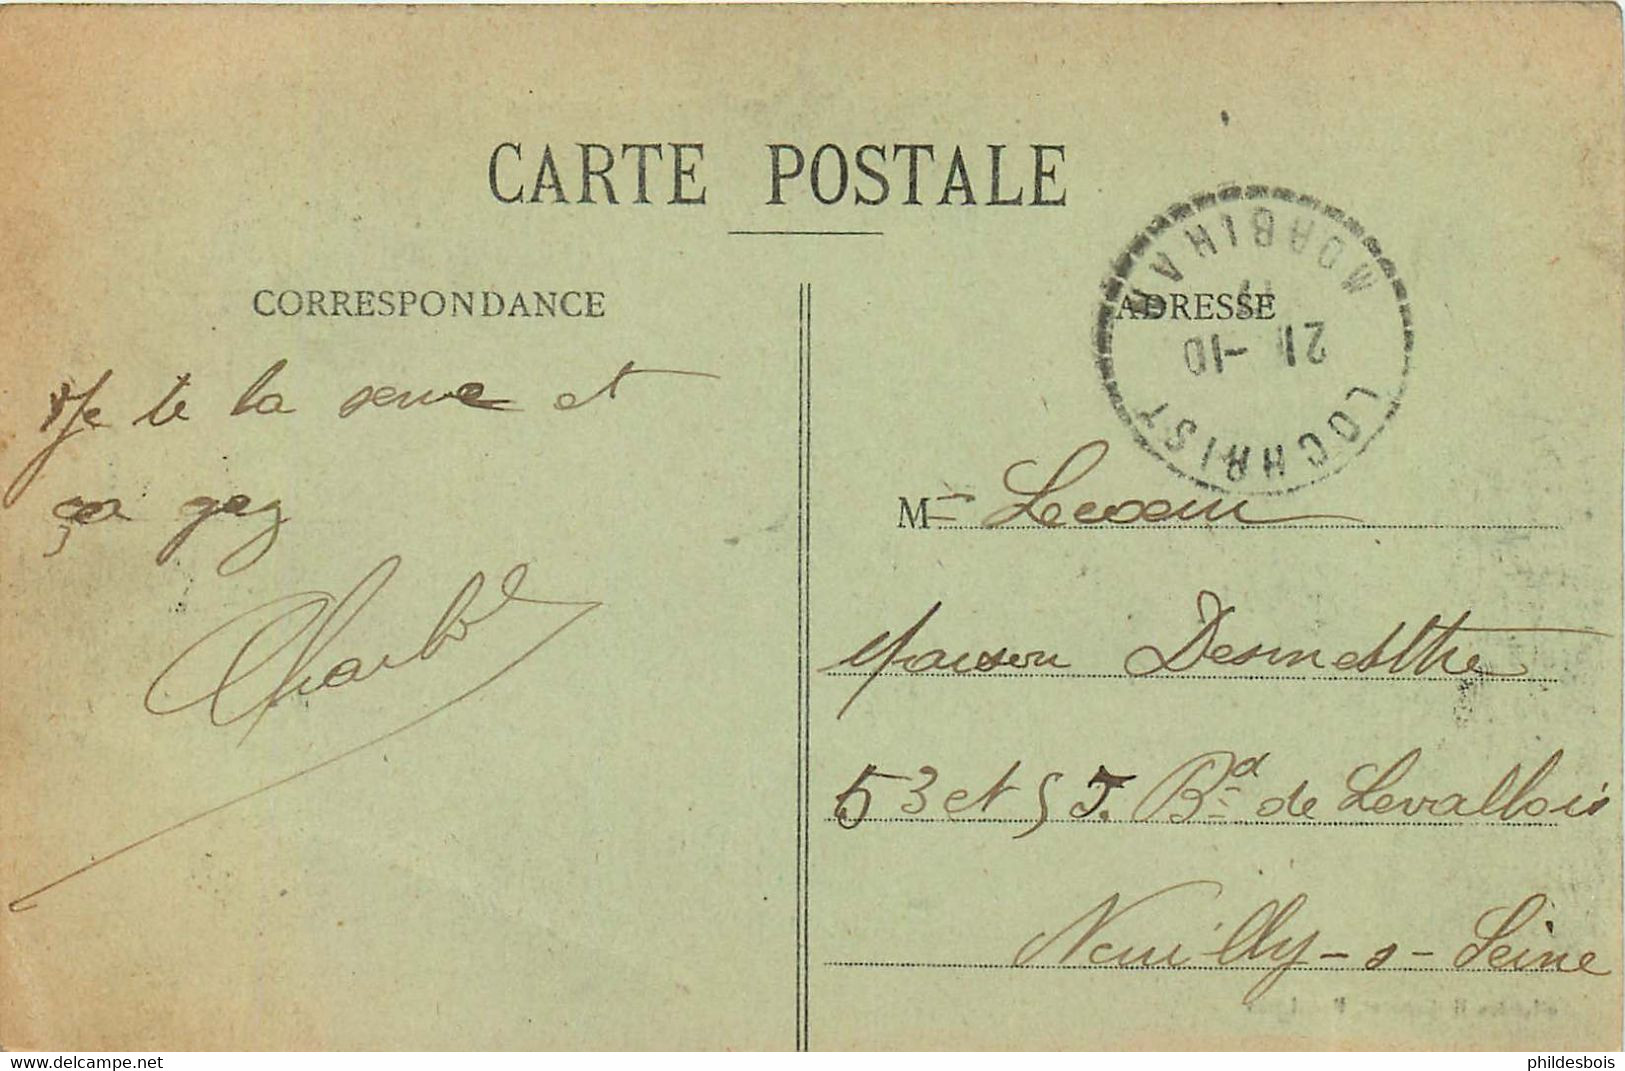 CARTE POSTALE
CORRESPONDANCE
Je te la serre et
ça gaz
Charles
ADRESSE
MORBIHAN
21 -10
LOCHRIST
M
Maison Desmesthe
53 et 55. Bd de Levallois
Neuilly-s-Seine
phildesbois